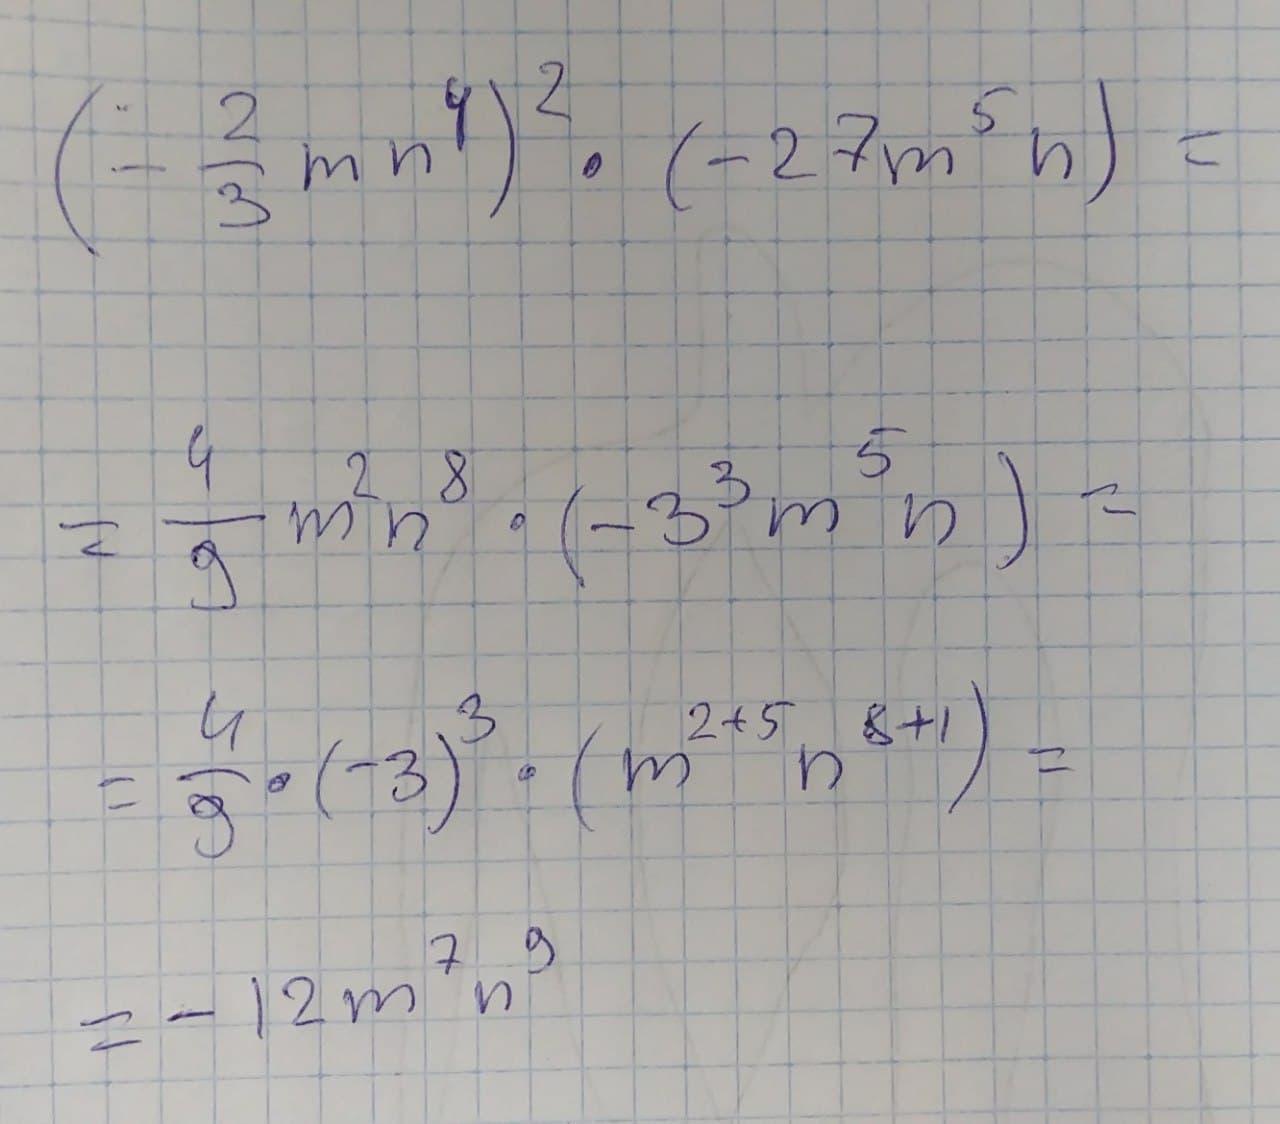 (-2/3 mn⁴)² · (-27m⁵n) =
= 4/9 m²n⁸ · (-3³m⁵n) =
= 4/9 · (-3)³ · (m²⁺⁵n⁸⁺¹) =
= -12m⁷n⁹